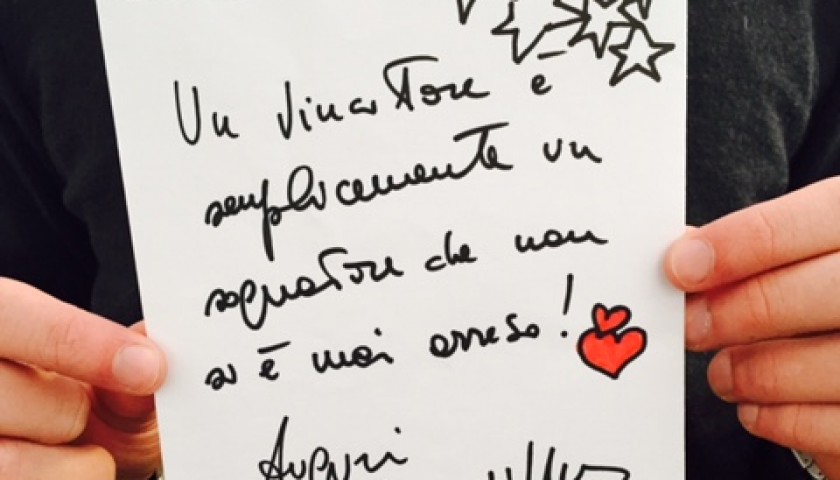 Un vincitore è
semplicemente un
sognatore che non
si è mai arreso!
Auguri